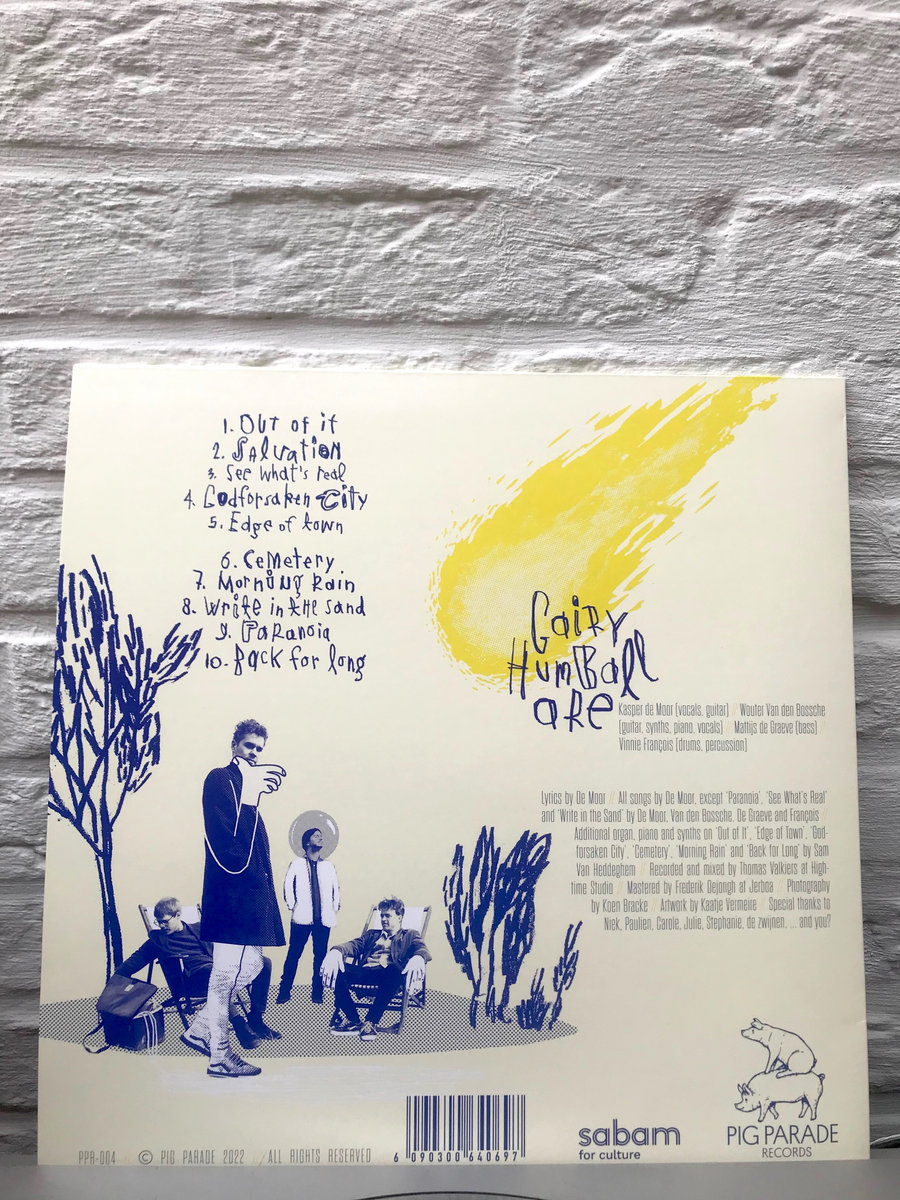 1. Out of it
2. Salvation
3. See what's real
4. Godforsaken City
5. Edge of town
6. Cemetery
7. Morning Rain
8. Write in the sand
9. Paranoia
10. Back for long
Gairy
Humball
are
Kasper de Moor (vocals, guitar) // Wouter Van den Bossche
(guitar, synths, piano, vocals) // Mattijs de Graeve (bass) //
Vinnie François (drums, percussion)
Lyrics by De Moor // All songs by De Moor, except 'Paranoia', 'See What's Real'
and 'Write in the Sand' by De Moor, Van den Bossche, De Graeve and François //
Additional organ, piano and synths on 'Out of It', 'Edge of Town', 'God-
forsaken City', 'Cemetery', 'Morning Rain' and 'Back for Long' by Sam
Van Heddeghem // Recorded and mixed by Thomas Valkiers at High-
time Studio // Mastered by Frederik Dejongh at Jerboa // Photography
by Koen Bracke // Artwork by Kaatje Vermeire // Special thanks to
Niek, Paulien, Carole, Julie, Stephanie, de zwijnen, ... and you?
PPR-004 // © PIG PARADE 2022 // ALL RIGHTS RESERVED
6 090300 640697
sabam
for culture
PIG PARADE
RECORDS